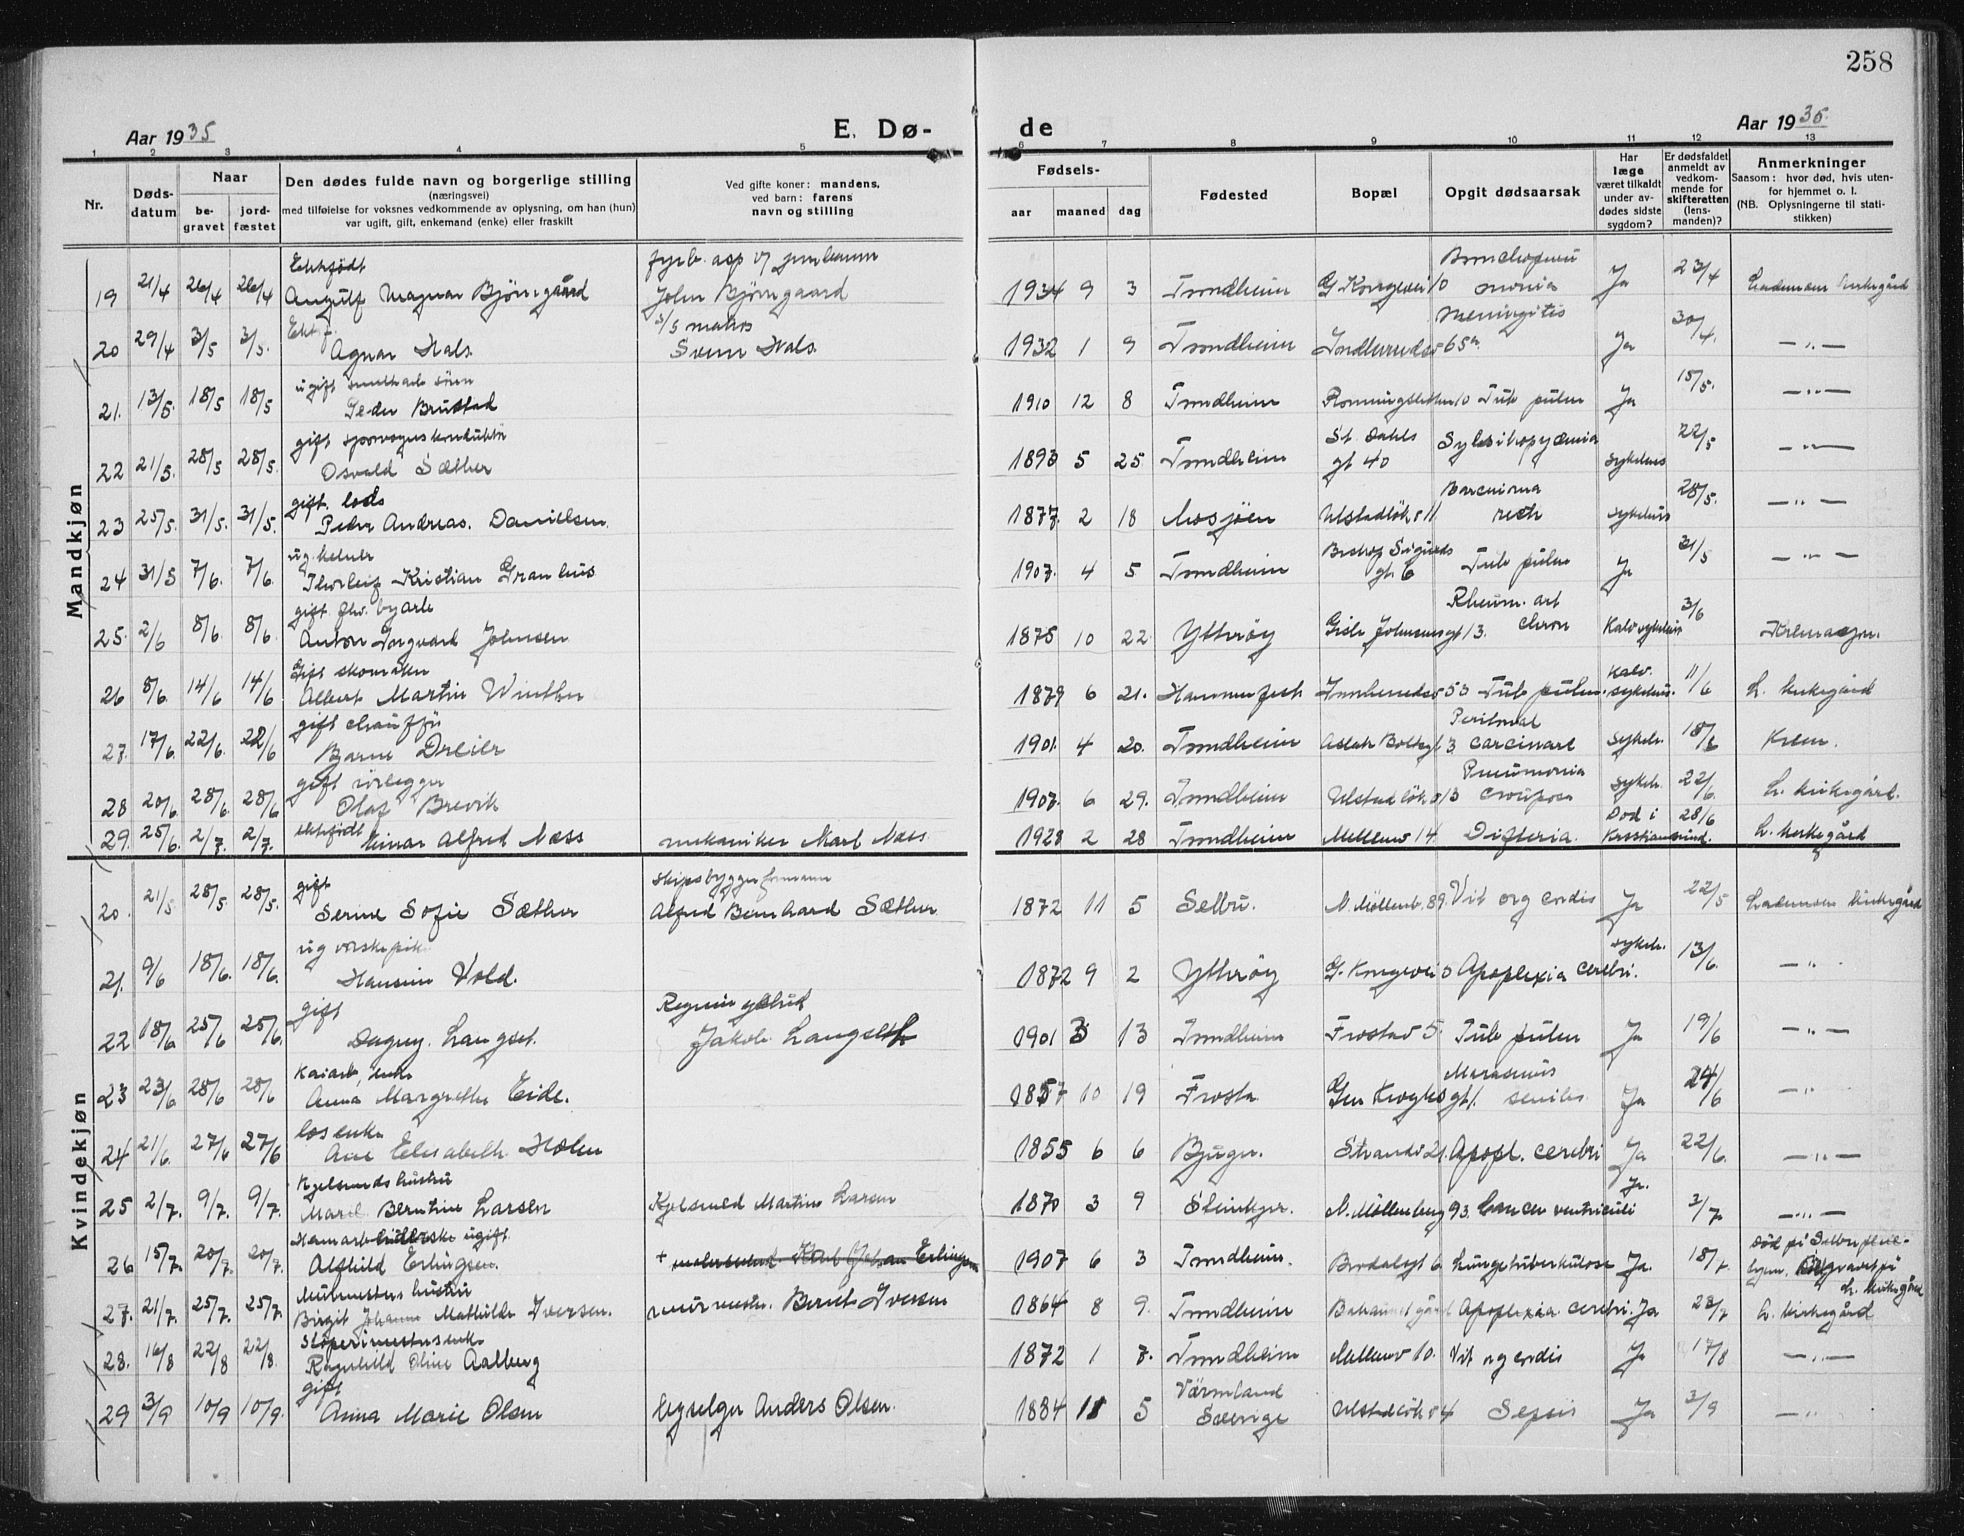 258
Aar 1935
E. Dø-
de
Aar 1935.
1 2 3 4 5 6 7 8 9 10 11 12 13
Nr.
Døds-
datum
Naar
be-
gravet
jord-
fæstet
Den dødes fulde navn og borgerlige stilling
(næringsvei)
med tilføielse for voksnes vedkommende av oplysning, om han (hun)
var ugift, gift, enkemand (enke) eller fraskilt
Ved gifte koner: mandens,
ved barn: farens
navn og stilling
Fødsels-
aar maaned dag
Fødested
Bopæl
Opgit dødsaarsak
Har
læge
været tilkaldt
under av-
dødes sidste
sygdom?
Er dødsfaldet
anmeldt av
vedkom-
mende for
skifteretten
(lens-
manden)?
Anmerkninger
Saasom: hvor død, hvis uten-
for hjemmet o. l.
(NB. Oplysningerne til stati-
stikken)
Mandkjøn
Ektefødt
19 21/4 26/4 26/4 Magnar Bjørngaard John Bjørngaard 1934 9 3 Trondheim Ja 23/4 Lademoen kirkegård
Ekte f. matros
20 29/4 3/5 3/5. Agnar Hals Svein Hals 1932 1 9 Trondheim Meningitis Ja 30/4. — „ —
ugift
21. 13/5. 18/5 18/5 Peder Brustad 1910 12 8 Trondheim Tub pulm Ja 15/5. — „ —
gift sporvognskonduktør
22 21/5. 28/5 28/5. Osvald Sæther 1893 5 25 Trondheim St. Jahls gt 40 sykehus 22/5 — „ —
gift. lods
23 25/5. 31/5. 31/5. Peder Andreas. Danielsen 1877. 2 18 Mosjøen sykehus 28/5. — „ —
ug. kelner
24 31/5 7/6. 7/6. Thorleif Kristian Granhus 1907. 4 5 Trondheim Bishop Sigurds gt. 6 Tub pulm Ja 31/5 — „ —
gift
25. 2/6 8/6. 8/6. Anton Ingvard Johnsen 1875 10 22 Ytterøy Gisle Johnsens gt 13. Rheum. art chron 3/6 Kremasjon.
Gift skomaker
26 8/6. 14/6 14/6 Albert Martin Winther 1879 6 21. Hammerfest 53 Tub pulm. sykehus. 11/6 L. kirkegård
gift chauffør
27. 17/6. 22/6. 22/6 Bjarne Dreier 1901. 4 20. Trondheim Aslak Boltsgt. 3 sykeh. 18/6 Krem.
gift rørlegger
28 20/6. 28/6. 28/6 Olaf Brevik 1907. 6 29. Trondheim Pneumonia crouposa sykeh. 22/6. L. kirkegård.
29. 25/6. 2/7. 2/7. ektefødt Einar Alfred Næss mekaniker Karl Næss. 1928 2 28 Trondheim Mellemv 14. Difteria. Død i Kristiansund. 28/6 L. kirkegård
Kvindekjøn
gift skipsbyggerformann
20. 21/5 28/5 28/5. Serine Sofie Sæther Alfred Bernhard Sæther 1872 11 5 Selbu. N. Møllenb. 89. Vit org cordis Ja 22/5 Lademoen kirkegård
ug vaskepik.
21. 9/6 18/6. 18/6. Hansine Vold. 1872 9 2 Ytterøy Apoplexia cerebri. sykeh. 13/6. — „ .
gift
22 18/6 25/6 25/6. Dagny. Langset. Jakob. Langseth 1901 3 13 Trondheim Frostav 5. Tub pulm Ja 19/6 — „ —
Kaiarb, enke
23 23/6 28/6 28/6 Anna Margrethe Eide. 1857 10 19 Frosta Gen Kroghs gt 1. Marasmus senilis Ja 24/6 — „
los enke
24 21/6. 27/6 27/6 Ane Elisabeth Holm 1855 6 6 Bjugn. Strandv 21. Apopl. cerebri Ja 22/6. — „ —
Kjelsmeds hustru
25 2/7. 9/7. 9/7. Maril Berntine Larsen Kjelsmed Martin Larsen 1870 3 9 Steinkjer. N. Møllenberg 93. Cancer ventriculi Ja. 3/7 — „ —
ugift
26 15/7. 20/7. 20/7. Alfhild Erlingsen. Erlingsen 1907 6 3 Trondheim. Lungetuberkulose Ja. 18/7 Død på Selbu pleie-
hjem. Begravet på L. kirkegård
Murmesters hustru
27. 21/7. 25/7. 25/7. Birgit Johanne Mathilde Iversen. murmester. Bernt Iversen 1864 8 9. Trondheim Apoplexia cerebri. Ja 23/7 L. kirkegård
28. 16/8 22/8 22/8. Ragnhild Oline Aalberg 1872 1 7. Trondheim Mellemv 10. Vit org cordis Ja 17/8 — „ —
gift
29 3/9 10/9 10/9. Anna Marie Olsen Anders Olsen. 1884 11 5 Värmland Sverige Sepsis Ja 3/9 — „ —